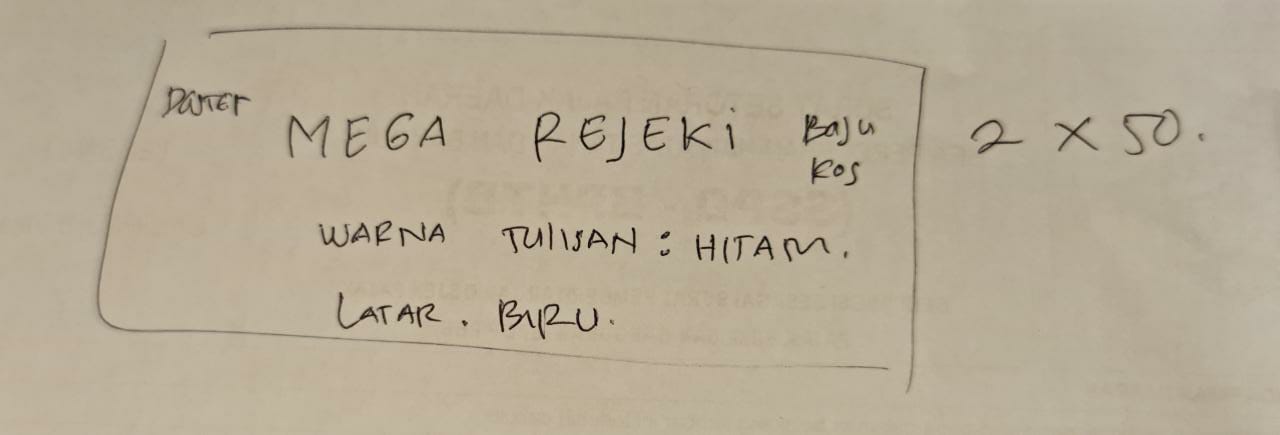 MEGA REJEKI Baju
Kos
2 X 50.
WARNA TULISAN : HITAM.
LATAR. BIRU.